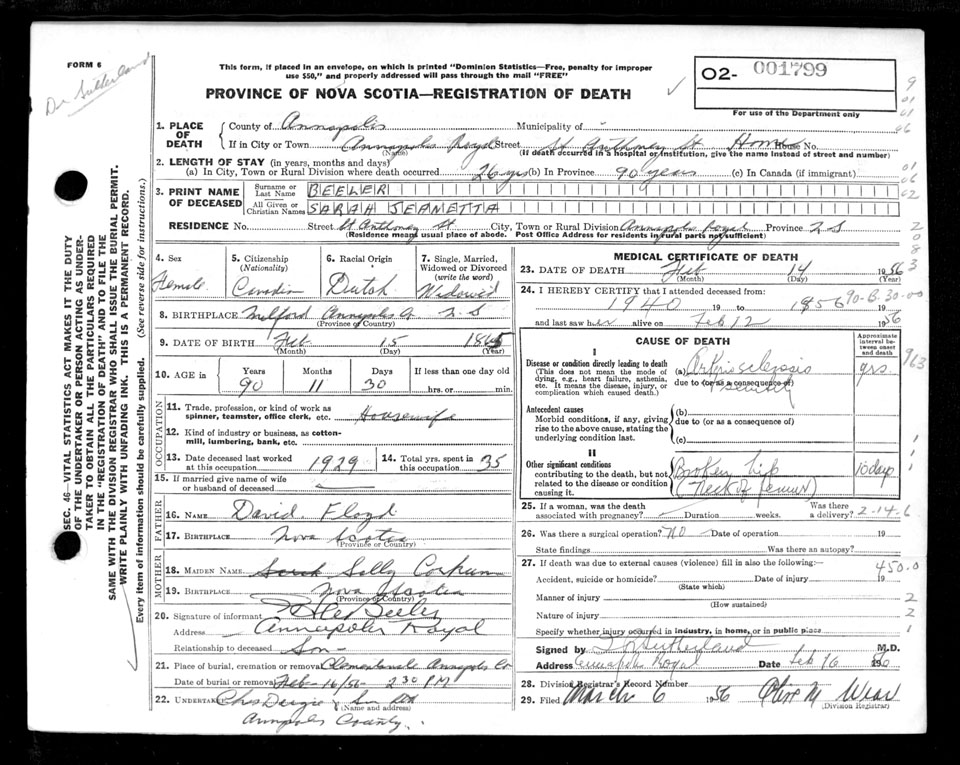 FORM 6
Dr Sutherland
This form, if placed in an envelope, on which is printed "Dominion Statistics—Free, penalty for improper
use $50," and properly addressed will pass through the mail "FREE"
PROVINCE OF NOVA SCOTIA—REGISTRATION OF DEATH
02- 001799
For use of the Department only
1. PLACE OF DEATH
County of Annapolis Municipality of
If in City or Town Annapolis Royal Street St Anthoney St House No.
(Name) (If death occurred in a hospital or institution, give the name instead of street and number)
2. LENGTH OF STAY (in years, months and days)
(a) In City, Town or Rural Division where death occurred 26 yrs (b) In Province 90 years (c) In Canada (if immigrant)
3. PRINT NAME OF DECEASED
Surname or Last Name BEELER
All Given or Christian Names SARAH JEANETTA
RESIDENCE No. Street St Anthoney St City, Town or Rural Division Annapolis Royal Province N S
(Residence means usual place of abode. Post Office Address for residents in rural parts not sufficient)
4. Sex Female
5. Citizenship (Nationality) Canadian
6. Racial Origin Dutch
7. Single, Married, Widowed or Divorced (write the word) Widowed
8. BIRTHPLACE Milford Annapolis Co N.S
(Province or Country)
9. DATE OF BIRTH Feb 15 1865
(Month) (Day) (Year)
10. AGE in Years Months Days If less than one day
90 11 30 hrs. or min.
OCCUPATION
11. Trade, profession, or kind of work as spinner, teamster, office clerk, etc. Housewife
12. Kind of industry or business, as cotton-mill, lumbering, bank, etc.
13. Date deceased last worked at this occupation 1929
14. Total yrs. spent in this occupation 35
15. If married give name of wife or husband of deceased
FATHER
16. Name David Floyd
17. Birthplace Nova Scotia
(Province or Country)
MOTHER
18. Maiden Name Sarah Sally Corkum
19. Birthplace Nova Scotia
(Province or Country)
20. Signature of informant Beeler
Address Annapolis Royal
Relationship to deceased Son
21. Place of burial, cremation or removal Clementsvale Annapolis Co
Date of burial or removal Feb-16/56- 2 30 PM
22. Undertaker Chas Dargie & Son
(Name and address)
Annapolis County
MEDICAL CERTIFICATE OF DEATH
23. DATE OF DEATH Feb 14 1956
(Month) (Day) (Year)
24. I HEREBY CERTIFY that I attended deceased from:
1940 19 to 1956 19
90-B-30-00
and last saw her alive on Feb 12 1956
CAUSE OF DEATH
Approximate interval between onset and death
I
Disease or condition directly leading to death
(This does not mean the mode of dying, e.g., heart failure, asthenia, etc. It means the disease, injury, or complication which caused death.)
(a) Arteriosclerosis yrs.
due to (or as a consequence of)
Senility
Antecedent causes
Morbid conditions, if any, giving rise to the above cause, stating the underlying condition last.
(b)
due to (or as a consequence of)
(c)
II
Other significant conditions
contributing to the death, but not related to the disease or condition causing it.
Broken hip 10 days
(Neck of femur)
25. If a woman, was the death associated with pregnancy? Duration weeks. Was there a delivery? 2-14-6
26. Was there a surgical operation? NO Date of operation 19
State findings Was there an autopsy?
27. If death was due to external causes (violence) fill in also the following:— 450.0
Accident, suicide or homicide? Date of injury 19
(State which)
Manner of injury 2
(How sustained)
Nature of injury 2
Specify whether injury occurred in industry, in home, or in public place 1
Signed by Sutherland M.D.
Address Annapolis Royal Date Feb 16 1956
28. Division Registrar's Record Number
29. Filed March 6 1956 M Wear
(Division Registrar)
SEC. 46—VITAL STATISTICS ACT MAKES IT THE DUTY
OF THE UNDERTAKER OR PERSON ACTING AS UNDER-
TAKER TO OBTAIN ALL THE PARTICULARS REQUIRED
IN THE "REGISTRATION OF DEATH" AND TO FILE THE
SAME WITH THE DIVISION REGISTRAR WHO SHALL ISSUE THE BURIAL PERMIT.
WRITE PLAINLY WITH UNFADING INK. THIS IS A PERMANENT RECORD.
Every item of information should be carefully supplied. (See reverse side for instructions.)